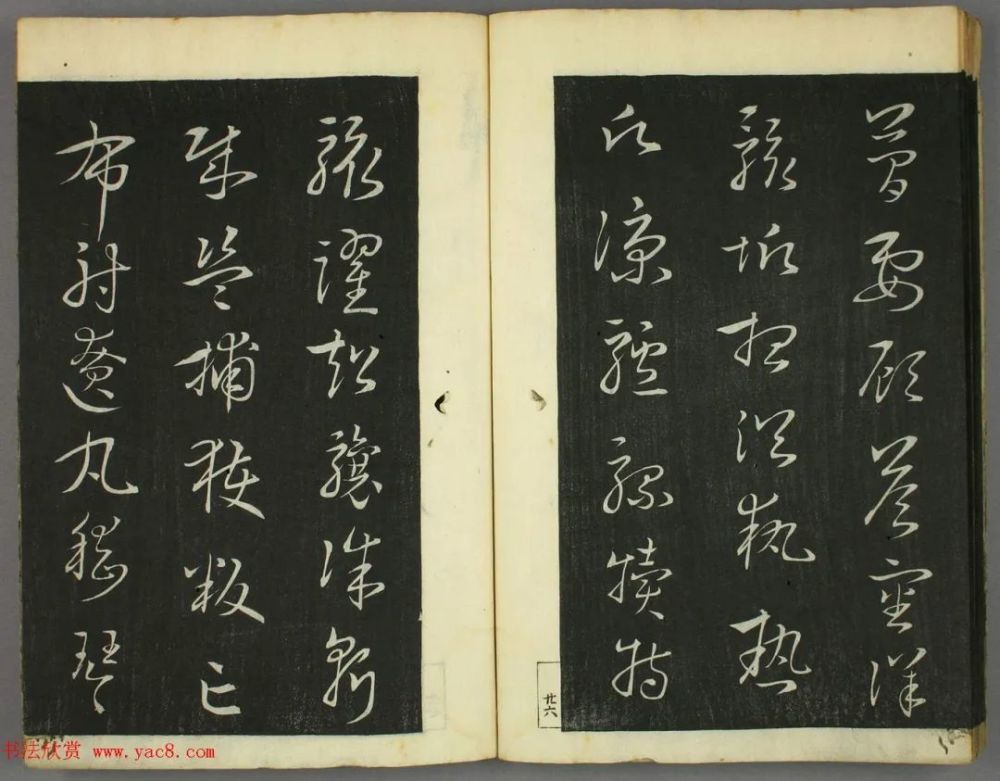 簡要顧答審詳
骸垢想浴執熱
願涼驢騾犢特
駭躍超驤誅斬
賊盜捕獲叛亡
布射遼丸嵇琴
廿六
书法欣赏 www.yac8.com